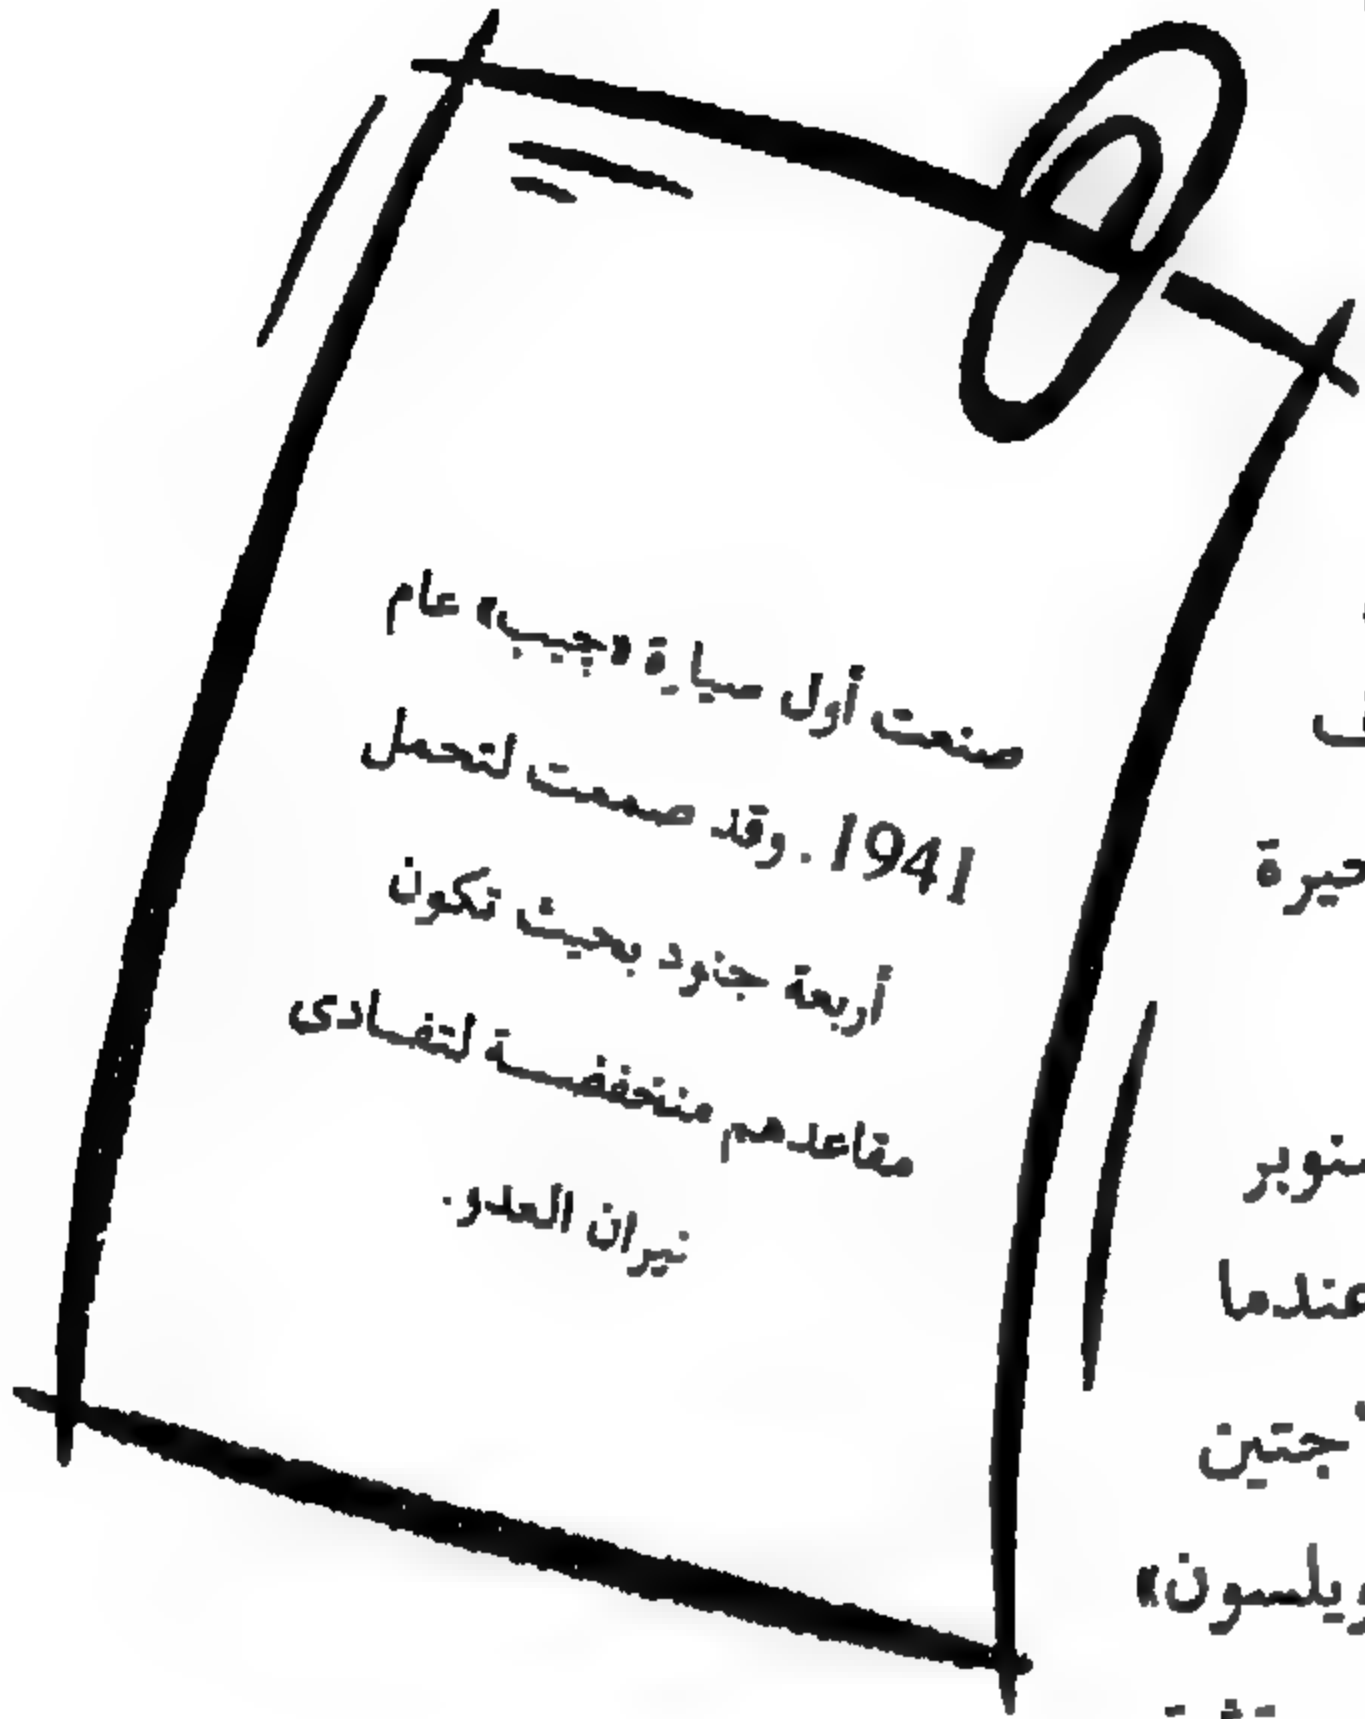 صنعت أول سيارة «جيب» عام
1941. وقد صممت لتحمل
أربعة جنود بحيث تكون
مقاعدهم منخفضة لتفادى
نيران العدو.
حيرة
عندما
ويلسون»